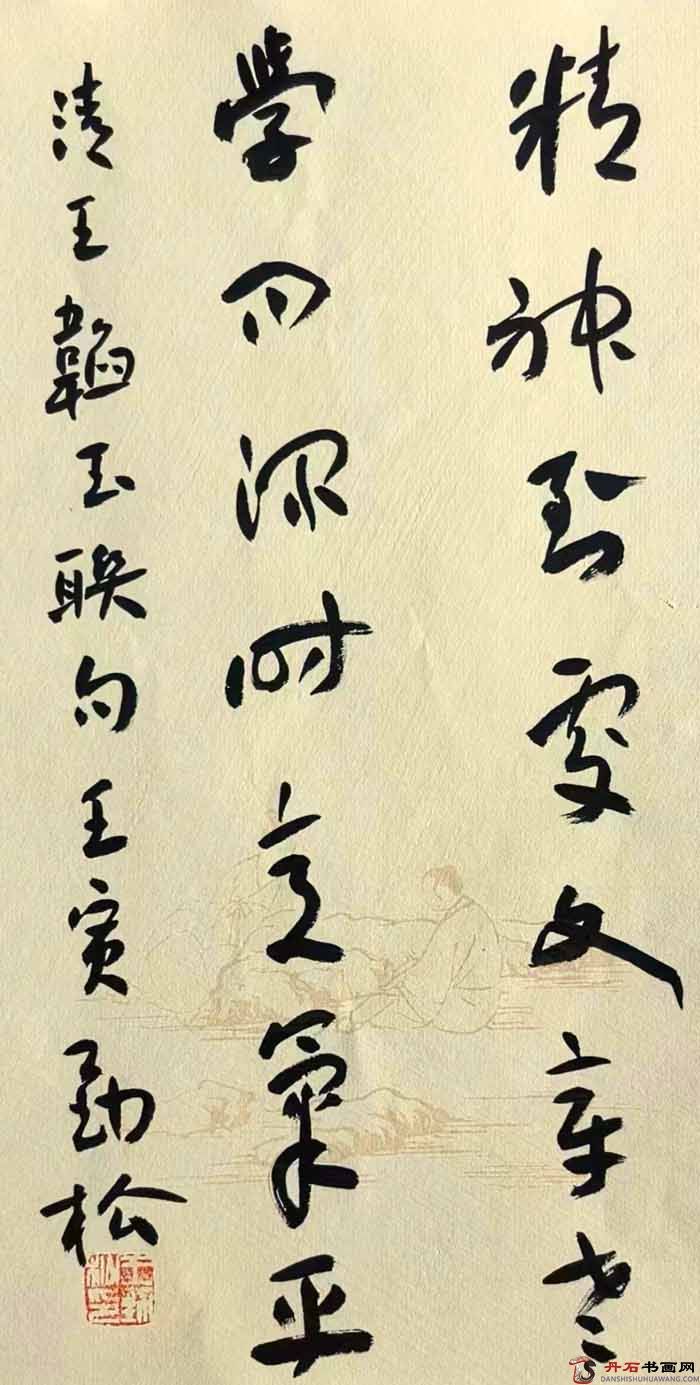 精神到處文章老
學問深時意氣平
清王韞玉聯句壬寅勁松
丹石书画网
DANSHISHUHUAWANG.COM